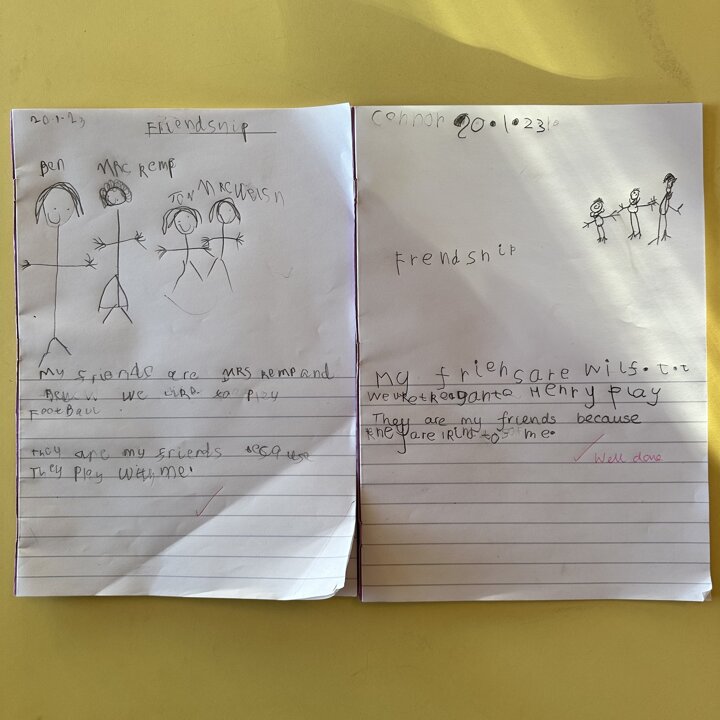 20.1.23
Friendship
Ben
MRS Kemp
Tom
My friends are MRS Kemp and
Ben. We like to play
FootBall.
They are my friends because
They play with me.
Connor 20.1.23
Frendship
My friens are Wilf.
Henry play
They are my friends because
they are to me.
Well done